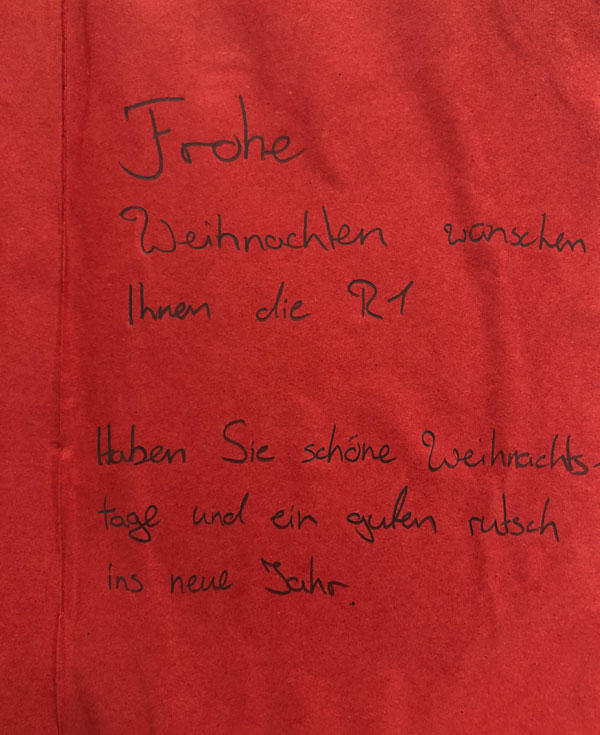 Frohe
Weihnachten wünschen
Ihnen die R1
Haben Sie schöne Weihnachts-
tage und ein guten rutsch
ins neue Jahr.